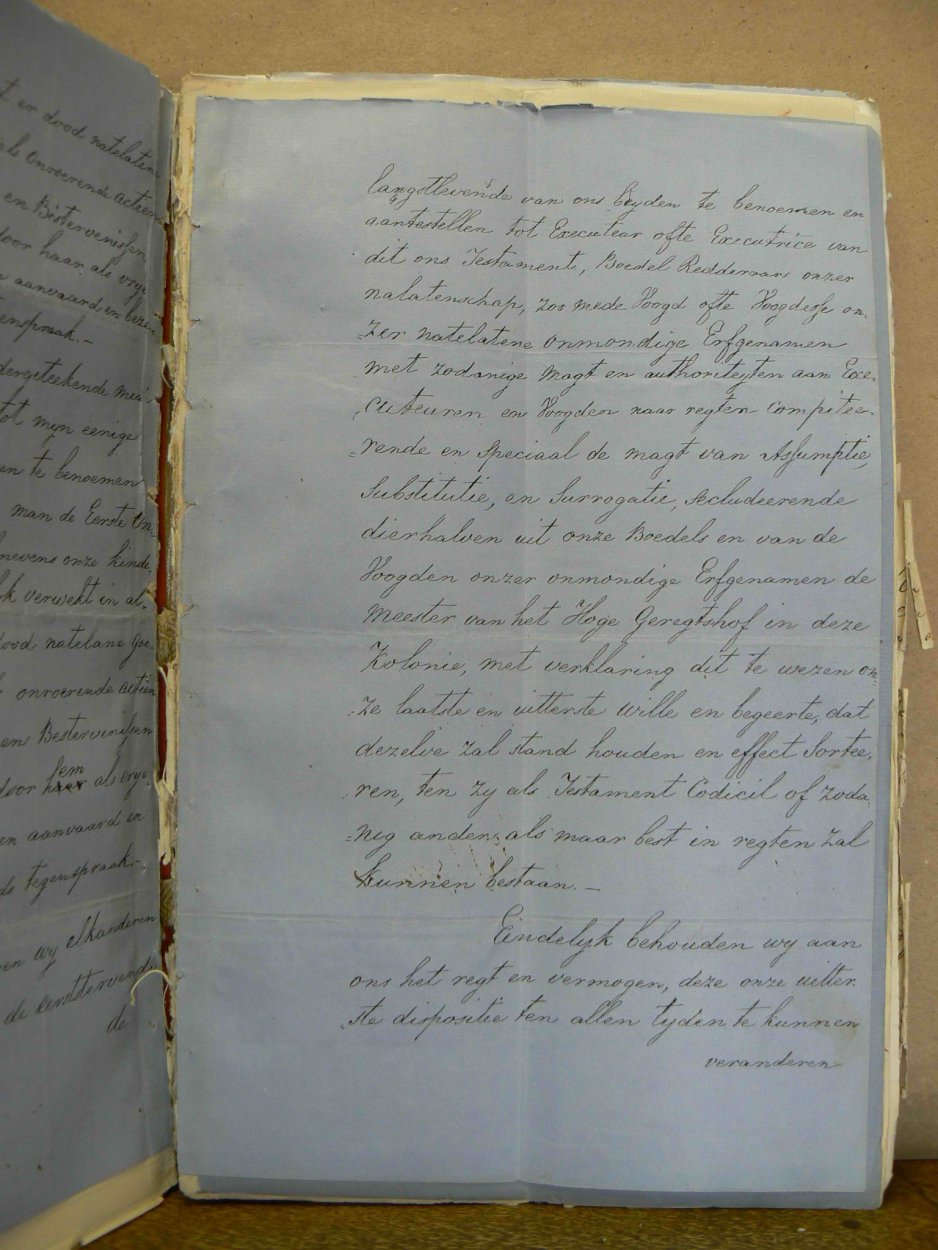 t er dood natelaten
als Onroerende actien
en Bestervenissen
door haar als vrye
n aanvaard en beze-
enspraak.-
dergeteekende mi
tot myn eenige
en te benoemen
man de Eerste On-
nevens onze kinde
k verwekt in al-
dood natelane Goe-
onroerende actien
en Bestervenissen
door hem haar als vrye
en aanvaard en
ds tegenspraak.-
en wy elkanderen
de eerststervende
de
langstlevende van ons beyden te benoemen en
aantestellen tot Executeur ofte Executrice van
dit ons Testament, Boedel Redderaar onzer
nalatenschap, zoo mede Voogd ofte Voogdesse on-
=zer natelatene onmondige Erfgenamen
met zodanige magt en authoriteyten aan Exe-
=cuteuren en Voogden naar regten compitee-
=rende en speciaal de magt van Assumptie,
Substitutie, en Surrogatie, secludeerende
dierhalven uit onze Boedels en van de
Voogden onzer onmondige Erfgenamen de
Meester van het Hoge Geregtshof in deze
Kolonie, met verklaring dit te wezen on-
=ze laatste en uitterste wille en begeerte, dat
dezelve zal stand houden en effect Sortee-
ren, ten zy als Testament Codicil of zoda-
=nig anders als maar best in regten zal
kunnen bestaan.-
Eindelyk behouden wy aan
ons het regt en vermogen, deze onze uitter-
=ste dispositie ten allen tyden te kunnen
veranderen